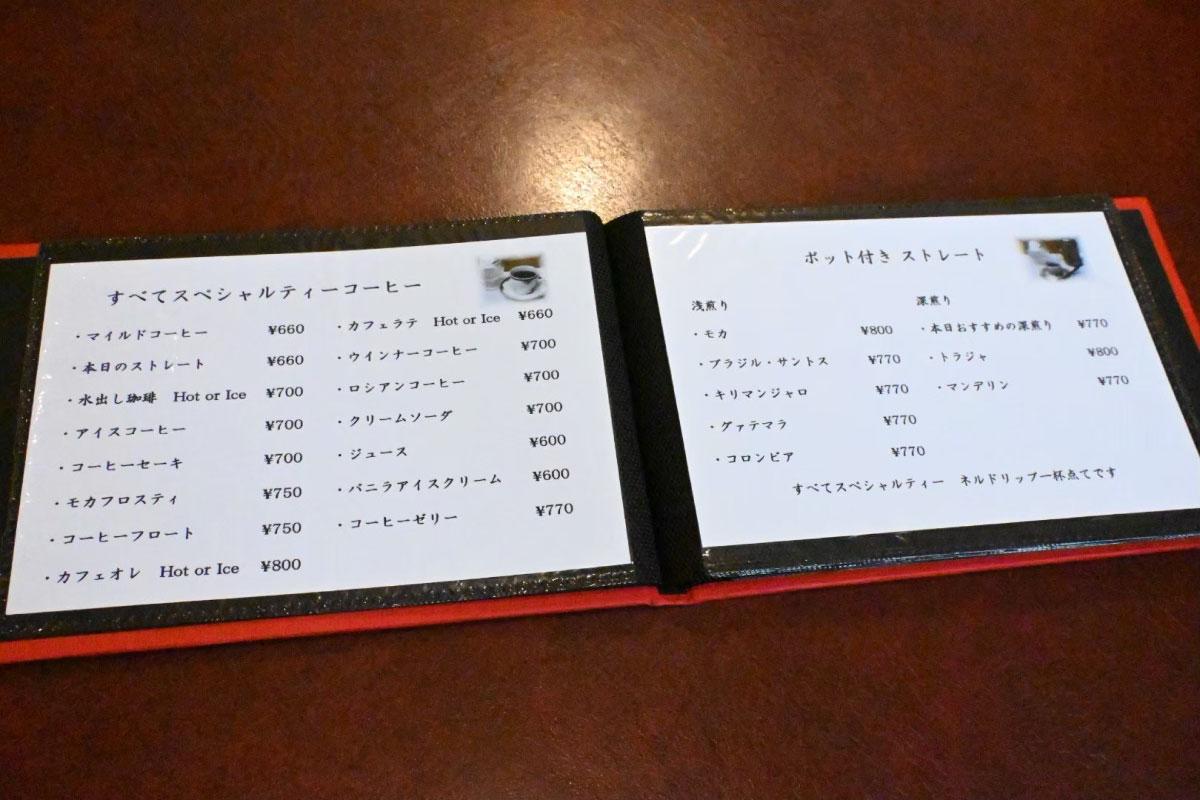 すべてスペシャルティーコーヒー
・マイルドコーヒー ¥660
・本日のストレート ¥660
・水出し珈琲 Hot or Ice ¥700
・アイスコーヒー ¥700
・コーヒーセーキ ¥700
・モカフロスティ ¥750
・コーヒーフロート ¥750
・カフェオレ Hot or Ice ¥800
・カフェラテ Hot or Ice ¥660
・ウインナーコーヒー ¥700
・ロシアンコーヒー ¥700
・クリームソーダ ¥700
・ジュース ¥600
・バニラアイスクリーム ¥600
・コーヒーゼリー ¥770
ポット付き ストレート
浅煎り
・モカ ¥800
・ブラジル・サントス ¥770
・キリマンジャロ ¥770
・グァテマラ ¥770
・コロンビア ¥770
深煎り
・本日おすすめの深煎り ¥770
・トラジャ ¥800
・マンデリン ¥770
すべてスペシャルティー ネルドリップ一杯点てです